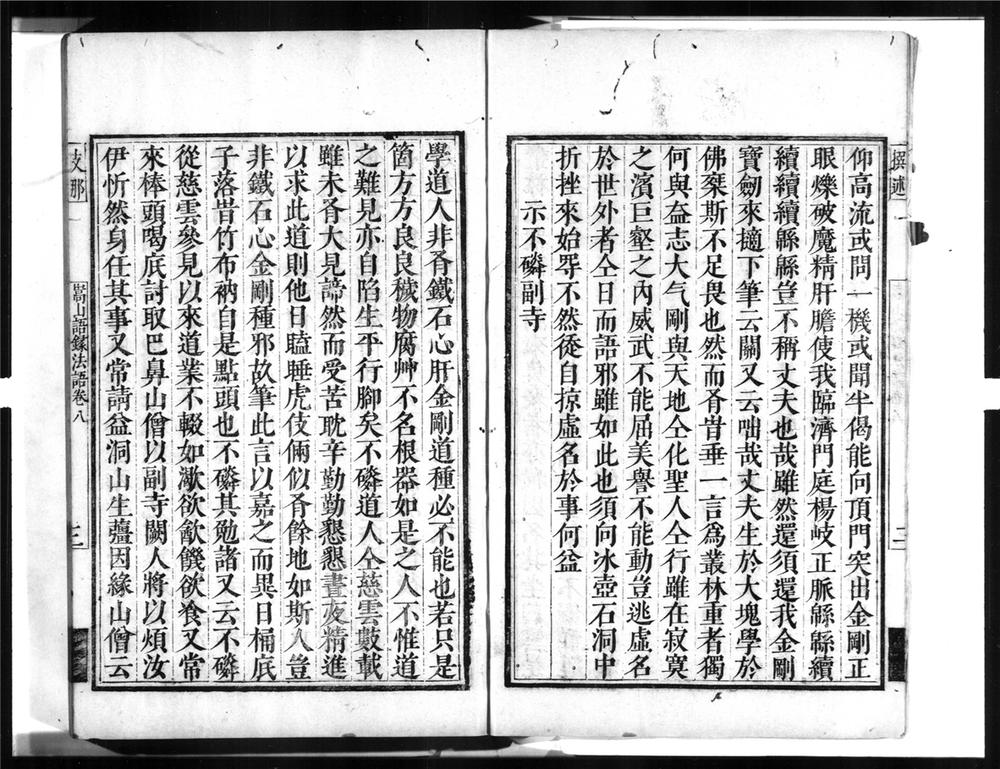 撰述
仰高流或問一機或聞半偈能向頂門突出金剛正
眼爍破魔精肝膽使我臨濟門庭楊岐正脈緜緜續
續續續緜緜豈不稱丈夫也哉雖然還須還我金剛
寶劒來擿下筆云關又云咄哉丈夫生於大塊學於
佛桼斯不足畏也然而肴昔垂一言爲叢林重者獨
何與葢志大气剛與天地仝化聖人仝行雖在寂寞
之濱巨壑之內威武不能屈美譽不能動豈逃虛名
於世外者仝日而語邪雖如此也須向冰壺石洞中
折挫來始㝵不然從自掠虛名於事何益
示不磷副寺
學道人非肴鐵石心肝金剛道種必不能也若只是
箇方方良良穢物腐艸不名根器如是之人不惟道
之難見亦自陷生平行腳矣不磷道人仝慈雲數載
雖未肴大見諦然而受苦耽辛勤勤懇懇晝夜精進
以求此道則他日瞌睡虎伎倆似肴餘地如斯人豈
非鐵石心金剛種邪故筆此言以嘉之而異日桶底
子落昔竹布衲自是點頭也不磷其勉諸又云不磷
從慈雲參見以來道業不輟如漱欲歃饑欲飡又常
來棒頭喝底討取巴鼻山僧以副寺闕人將以煩汝
伊忻然身任其事又常請益洞山生薑因緣山僧云
支那
嵩山語錄法語卷八
三